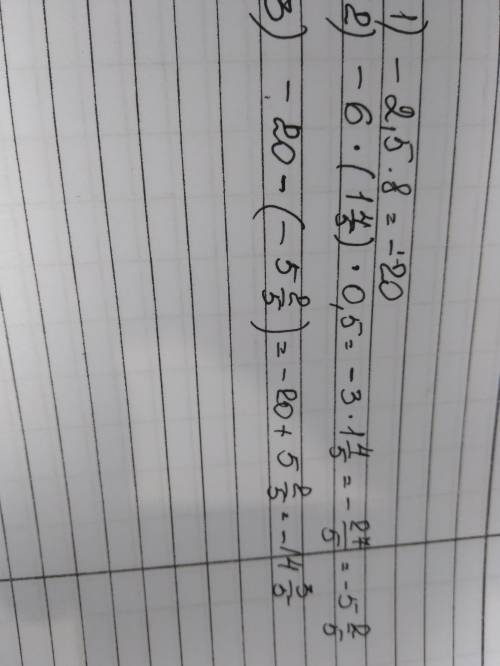 1) - 2,5 · 8 = -20
2) - 6 · (1 4/5) · 0,5 = -3 · 1 4/5 = - 27/5 = -5 2/5
3) - 20 - (- 5 2/5) = - 20 + 5 2/5 = -14 3/5